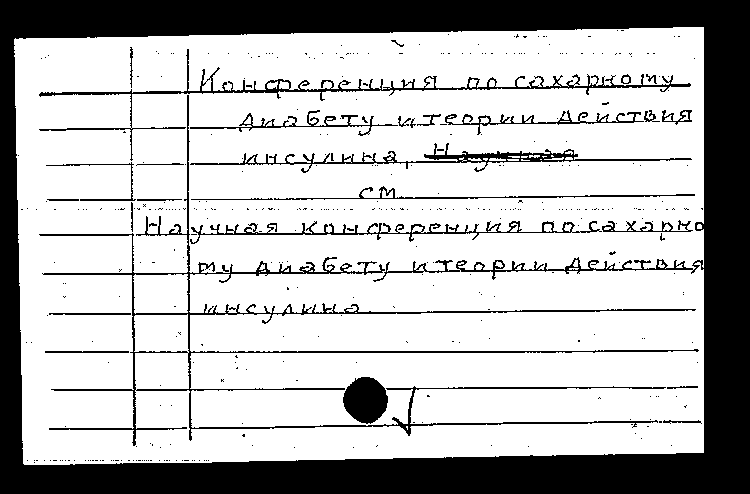 Конференция по сахарному
диабету и теории действия
инсулина, Научная
см
Научная конференция по сахарно
му диабету и теории действия
инсулина.